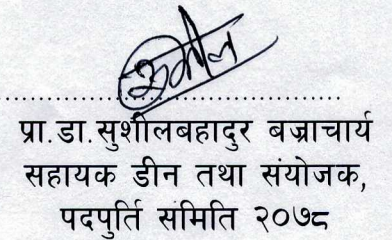 सुशील
प्रा.डा.सुशीलबहादुर बज्राचार्य
सहायक डीन तथा संयोजक,
पदपुर्ति समिति २०७८